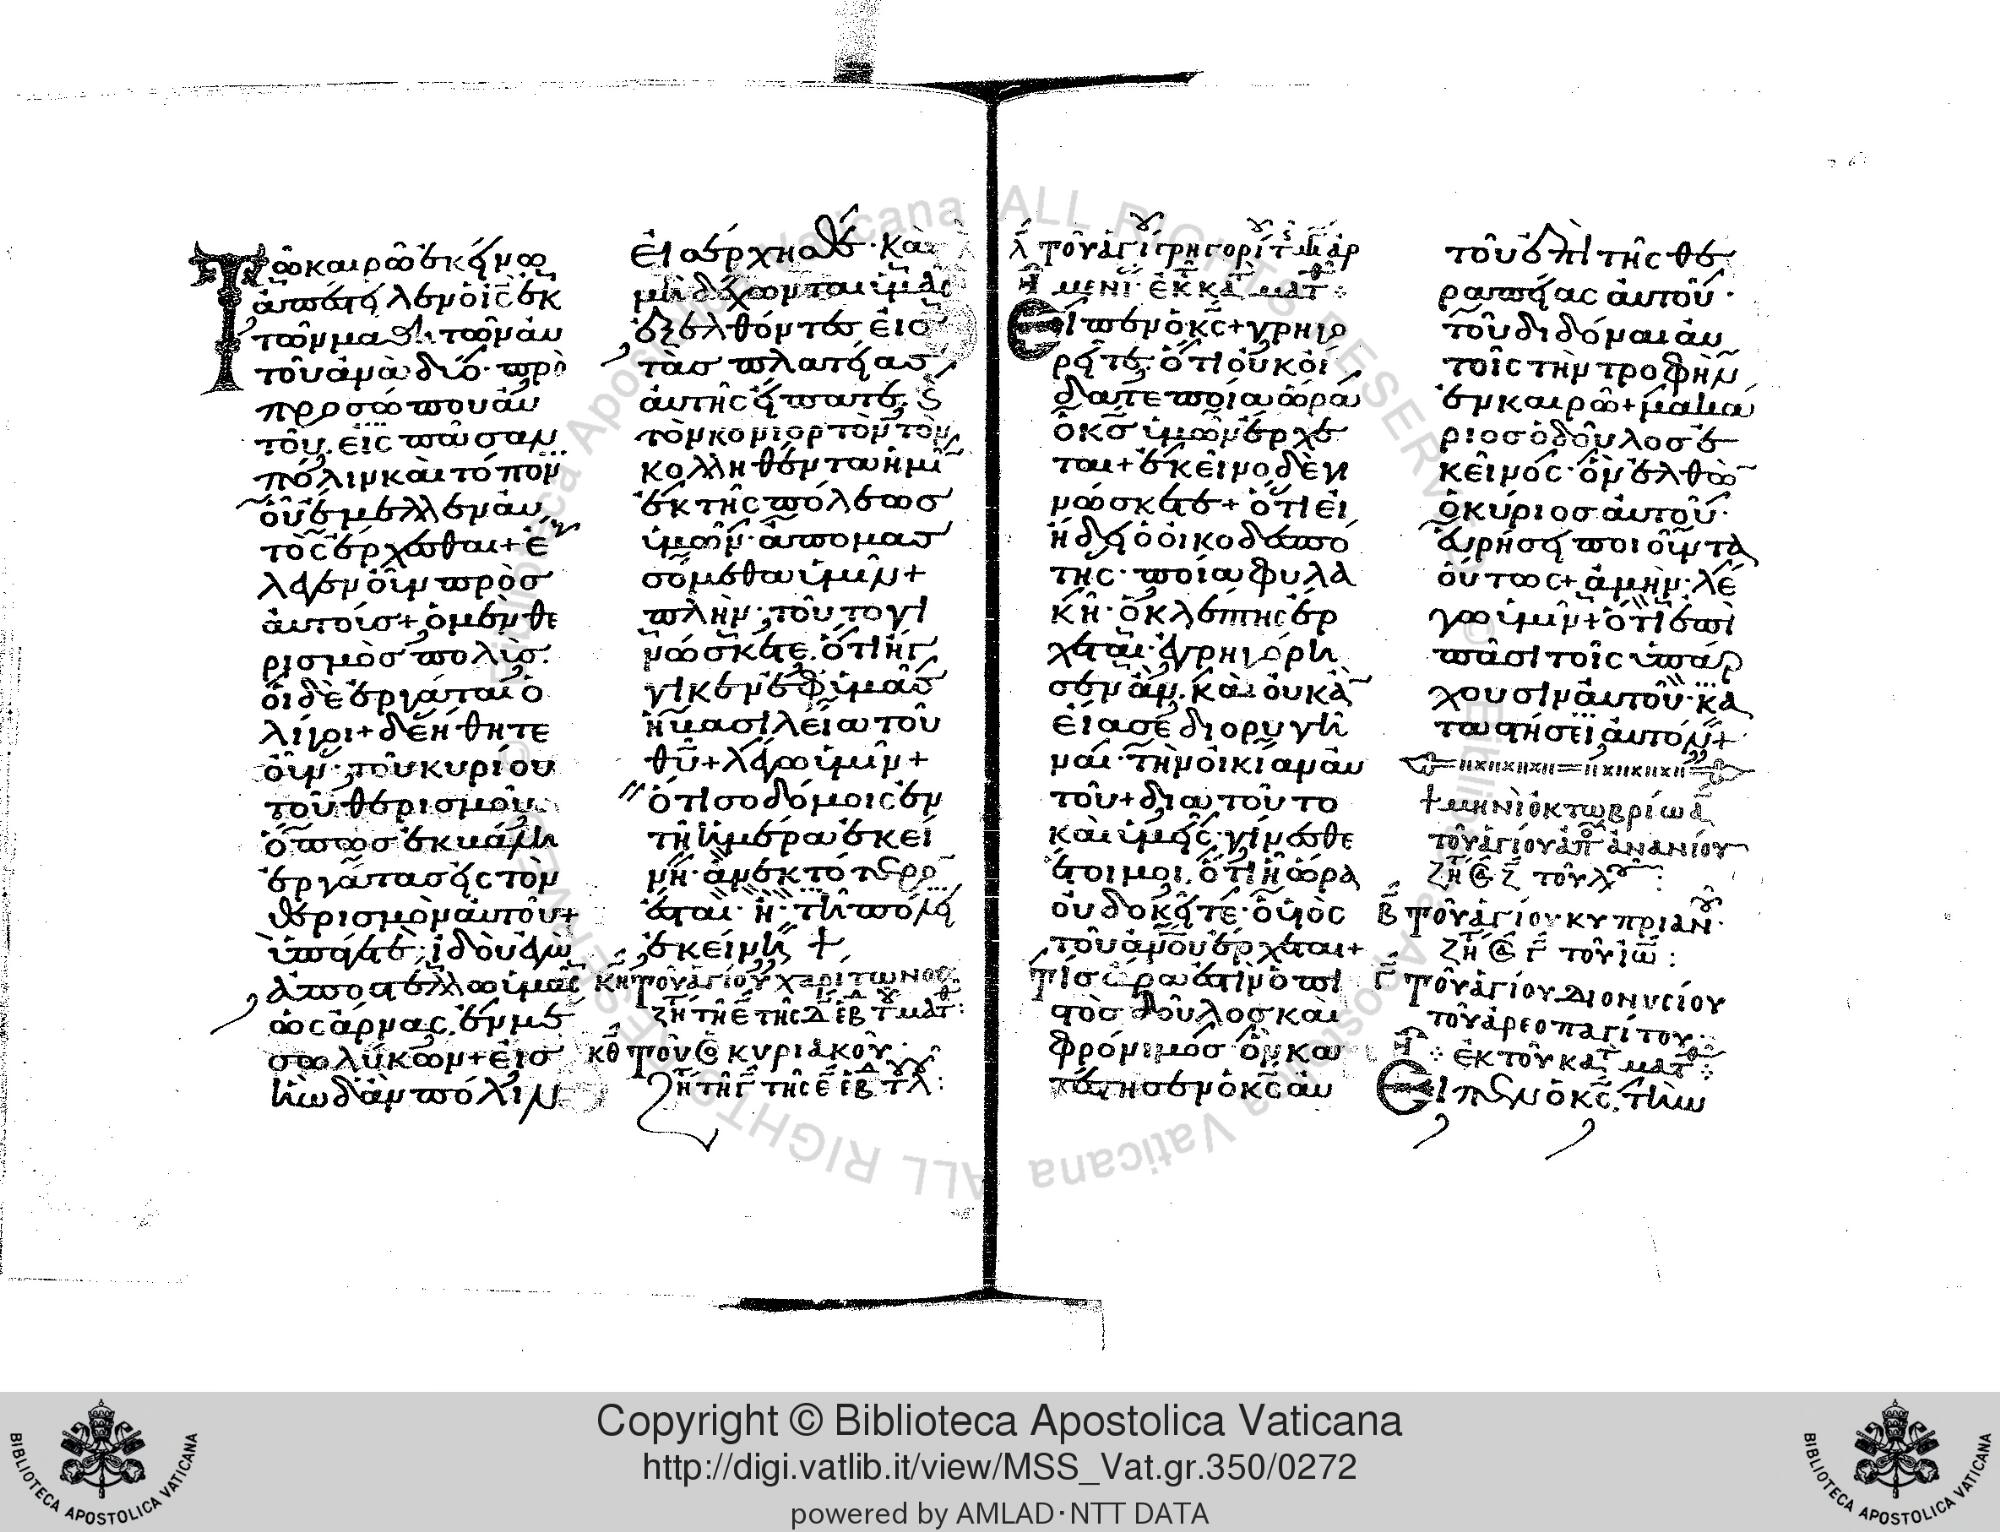 Τῶ καιρῶ ἐκείνω
ἀπέστειλεν ὁ ις ἐκ
τῶν μαθητῶν αὐ
τοῦ ἀνὰ δύο· πρὸ
προσώπου αὐ
τοῦ. εἰς πᾶσαν
πόλιν καὶ τόπον
οὗ ἔμελλεν αὐ
τὸς ἔρχεσθαι + ἔ
λεγεν οὖν πρὸς
αὐτούς + ὁ μὲν θε
ρισμὸς πολύς.
οἱ δὲ ἐργάται ὀ
λίγοι + δεήθητε
οὖν τοῦ κυρίου
τοῦ θερισμοῦ.
ὅπως ἐκβάλη
ἐργάτας εἰς τὸν
θερισμὸν αὐτοῦ +
ὑπάγετε· ἰδοὺ ἐγὼ
ἀποστέλλω ὑμᾶς
ὡς ἄρνας. ἐν μέ
σω λύκων + εἰς
ἣν δ' ἂν πόλιν
εἰσέρχησθε· καὶ
μὴ δέχωνται ὑμᾶς
ἐξελθόντες εἰς
τὰς πλατείας
αὐτῆς εἴπατε.
τὸν κονιορτὸν τὸν
κολληθέντα ἡμῖ
ἐκ τῆς πόλεως
ὑμῶν· ἀπομασ
σόμεθα ὑμῖν +
πλὴν· τοῦτο γι
νώσκετε. ὅτι ἤγ
γικεν ἐφ' ὑμᾶς
ἡ βασιλεία τοῦ
θυ + λέγω ὑμῖν +
ὅτι σοδόμοις ἐν
τῆ ἡμέρα ἐκεί
νη· ἀνεκτότερο
ἔσται· ἢ τῆ πόλει
ἐκείνη +
κη τοῦ ἁγίου χαρίτωνος
ζη τῆ ε τῆς δ εβ τ ματθ :
κθ τοῦ ὁ κυριακοῦ·
ζη τῆ γ τῆς ε εβ τ λ :
λ τοῦ ἁγί γρηγορί τ μ ἀρ
μενι· ἐκ κα ματθ
Εἶπεν ὁ κς + γρηγο
ρεῖτε. ὅτι οὐκ οἴ
δατε ποία ὥρα
ὁ κς ὑμῶν ἔρχε
ται + ἐκεῖνο δὲ γι
νώσκετε + ὅτι εἰ
ἤδει ὁ οἰκοδεσπό
της· ποία φυλα
κῆ· ὁ κλέπτης ἔρ
χεται· ἐγρηγόρη
σεν ἄν. καὶ οὐκ ἂ
εἴασε διορυγῆ
ναι· τὴν οἰκίαν αὐ
τοῦ + διὰ τοῦτο
καὶ ὑμεῖς γίνεσθε
ἕτοιμοι. ὅτι ἧ ὥρα
οὐ δοκεῖτε· ὁ υἱὸς
τοῦ ανου ἔρχεται +
τίς ἄρα ἐστὶν ὁ πι
στὸς δοῦλος καὶ
φρόνιμος ὃν κα
τέστησεν ὁ κς αὐ
τοῦ ἐπὶ τῆς θε
ραπείας αὐτοῦ·
τοῦ διδόναι αὐ
τοῖς τὴν τροφὴν
ἐν καιρῶ + μακά
ριος ὁ δοῦλος ἐ
κεῖνος· ὃν ἐλθὼ
ὁ κύριος αὐτοῦ·
εὑρήσει ποιοῦντα
οὕτως + ἀμὴν· λέ
γω ὑμῖν + ὅτι ἐπὶ
πᾶσι τοῖς ὑπάρ
χουσιν αὐτοῦ· κα
ταστήσει αὐτόν +
+ μηνὶ ὀκτωβρίω α
τοῦ ἁγίου ἀπ ἀνανίου
ζη ζ τοῦ λ :
β τοῦ ἁγίου κυπριαν·
ζη γ τοῦ ιω :
γ τοῦ ἁγίου διονυσίου
τοῦ ἀρεοπαγίτου·
ἐκ τοῦ κατ ματθ
Εἶπεν ὁ κς. τὴν
Copyright © Biblioteca Apostolica Vaticana
http://digi.vatlib.it/view/MSS_Vat.gr.350/0272
powered by AMLAD·NTT DATA
BIBLIOTECA APOSTOLICA VATICANA
BIBLIOTECA APOSTOLICA VATICANA